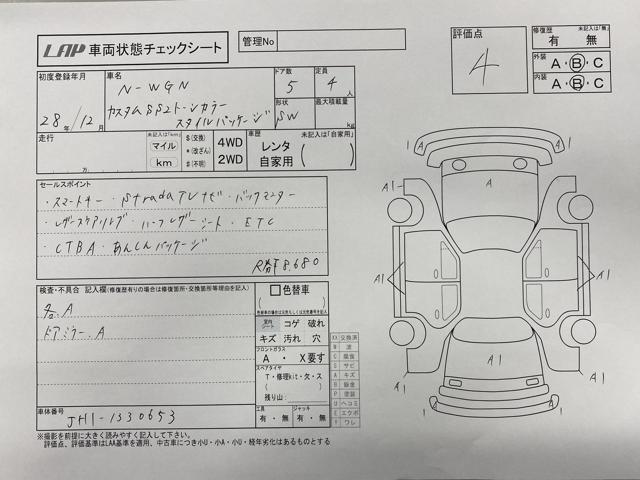 LAP 車両状態チェックシート
管理No
評価点
4
修復歴 未記入は「無」
有 無
外装 A・B・C
内装 A・B・C
初度登録年月
28年/12月
車名
N-WGN
カスタムSS2トーンカラー
スタイルパッケージ
ドア数
5
定員
4人
形状
SW
最大積載量
kg
走行
万
未記入は「km」
マイル
km
$(交換)
*(改ざん)
#(不明)
4WD
2WD
車歴 未記入は「自家用」
レンタ
自家用
セールスポイント
・スマートキー・StradaTVナビ・バックモニター
・レザーステアリング・ハーフレザーシート・ETC
・CTBA・あんしんパッケージ
R券¥8,680
検査・不具合 記入欄(修復歴有りの場合は修復箇所・交換箇所等理由を記入)
各、A
ドアミラー、A
色替車
室内
シート
コゲ 破れ
キズ 汚れ 穴
フロントガラス
A ・ X要す
スペアタイヤ
T・修理kit・欠・ス
残り山:
工具
有・無
ジャッキ
有・無
XX 交換済
W 波
C 腐食
S サビ
A キズ
B 鈑金
P 塗装
U ヘコミ
E エクボ
Y ワレ
車体番号
JH1-1330653
※撮影を前提に大きく読みやすく記入して下さい。
評価点、評価基準はLAA基準を適用、中古車につき小U・小A・小U・経年劣化はあるものとする
1 A A 1
A
A1 A1
A1 A1
A1 A1
A1
1 A A 1